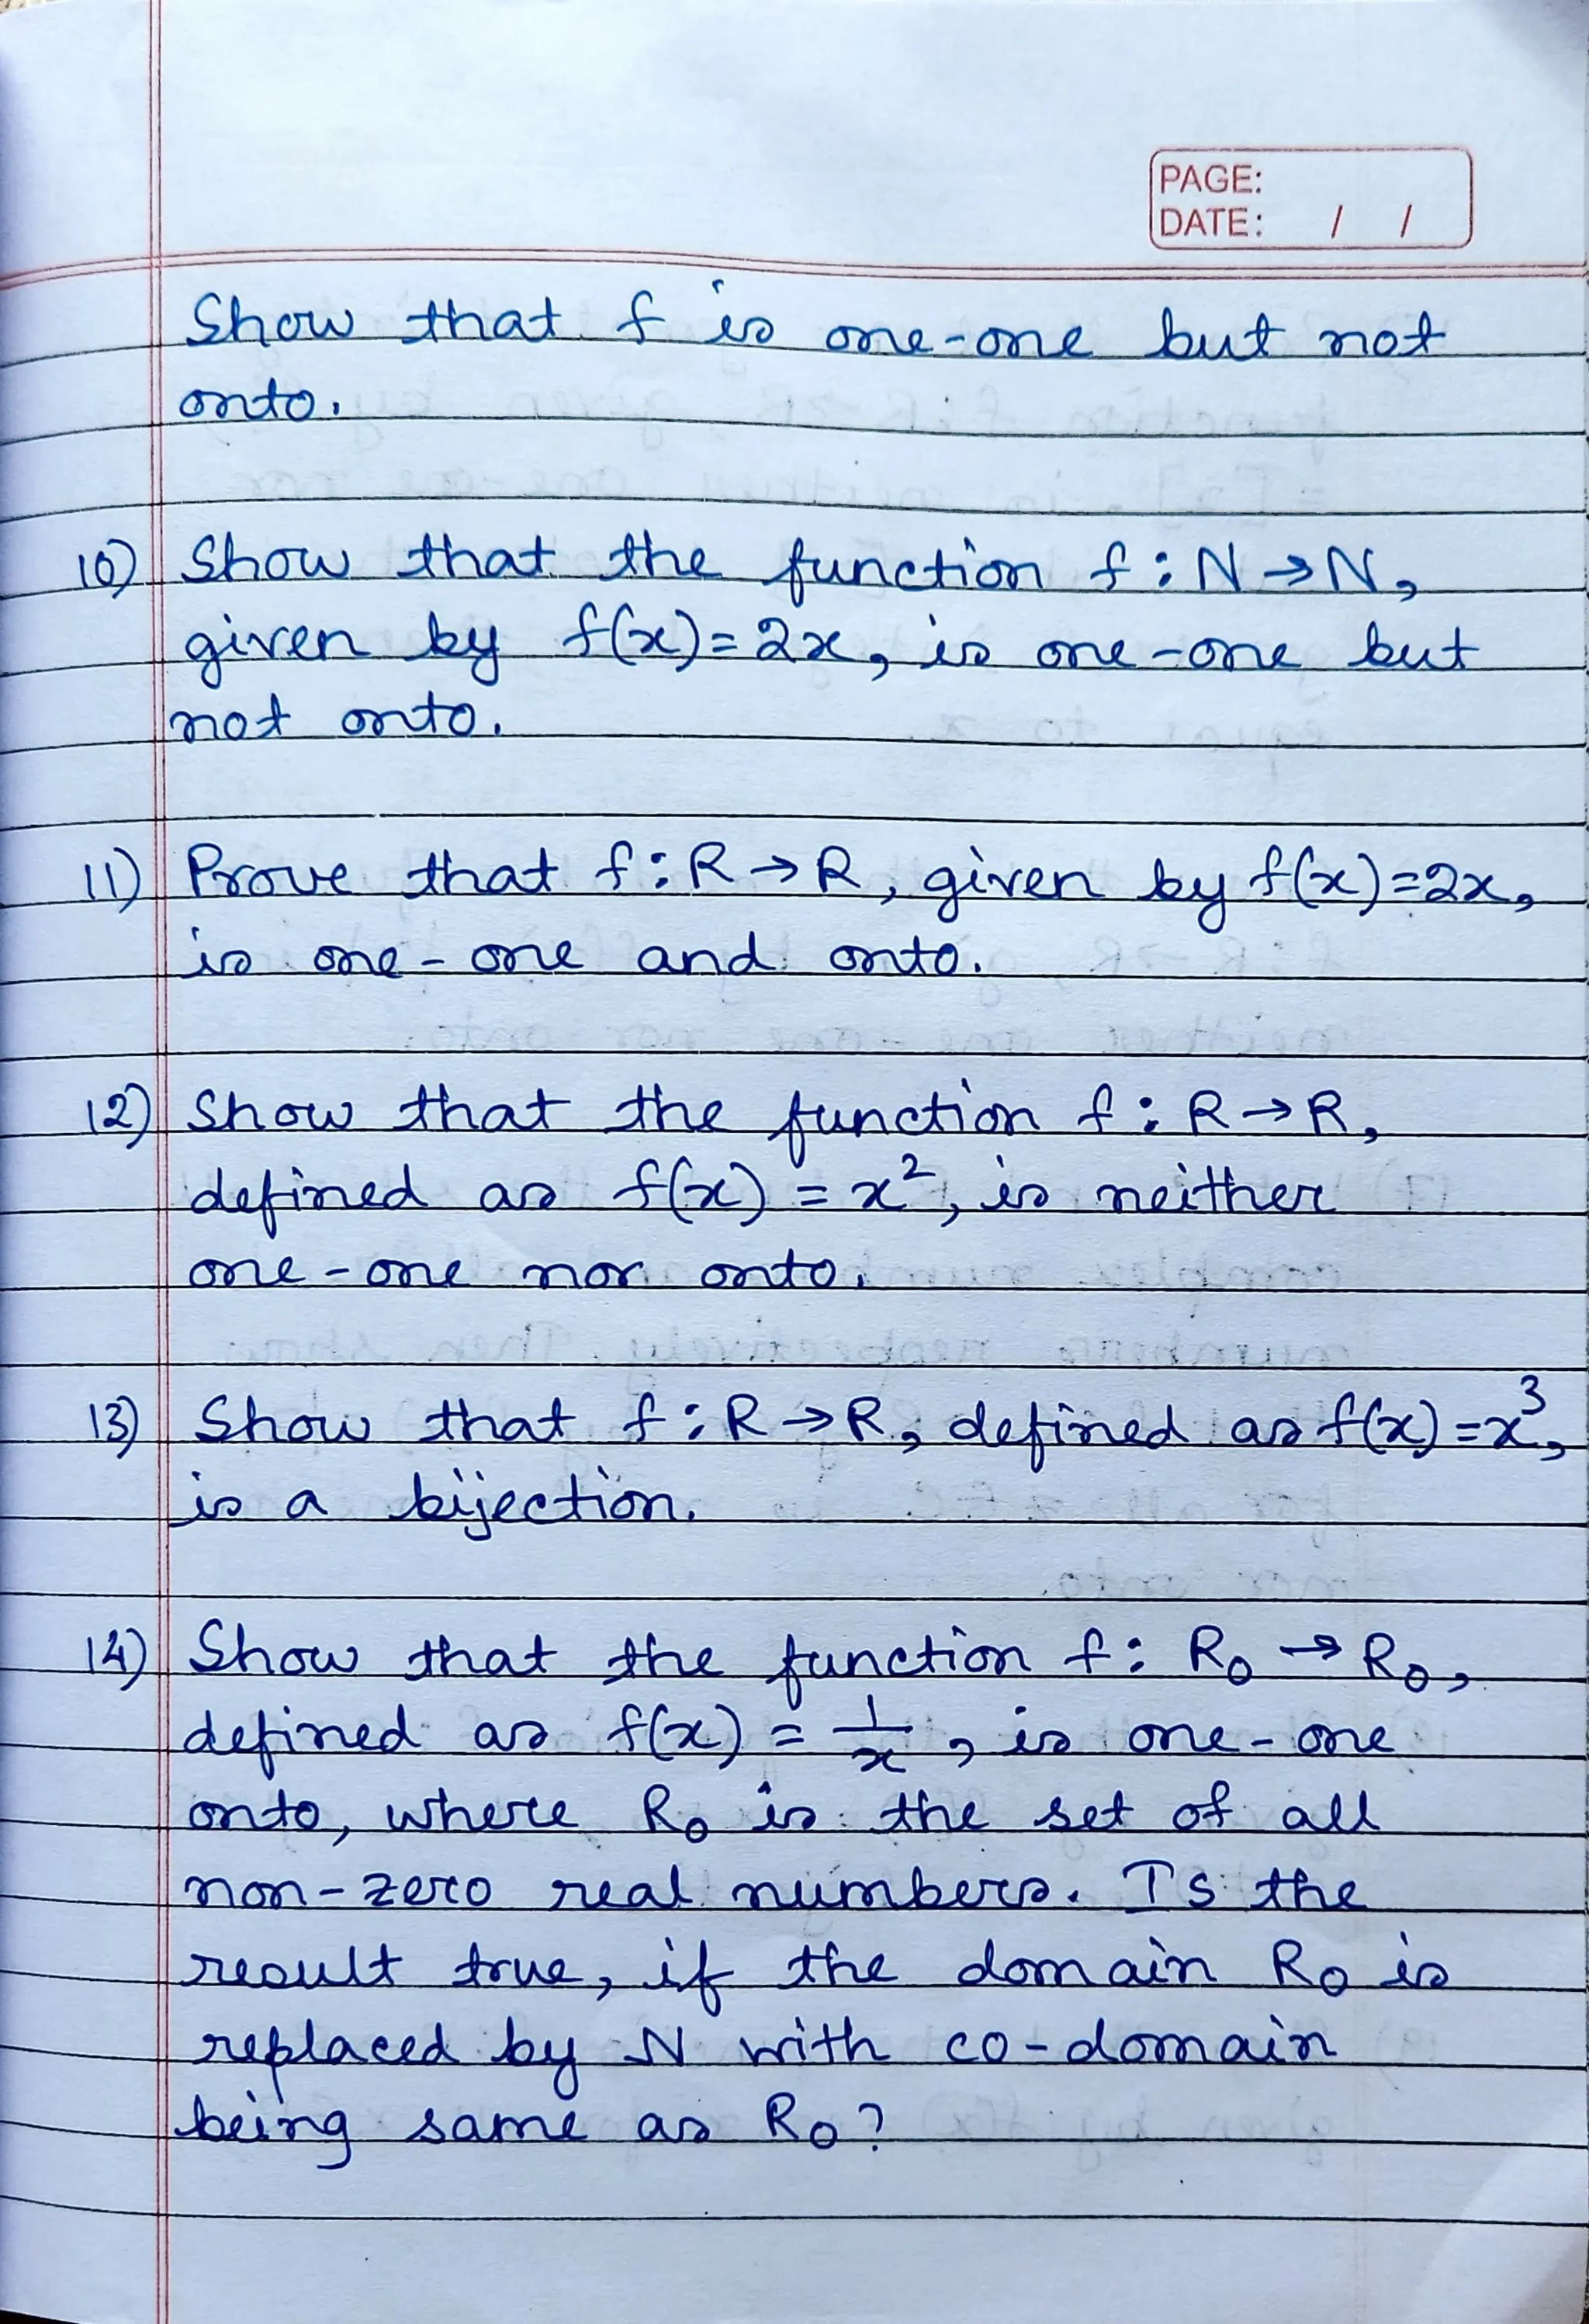 PAGE:
DATE: / /
Show that f is one-one but not
onto.
10) Show that the function f: N→N,
given by f(x)=2x, is one-one but
not onto.
11) Prove that f: R→R, given by f(x)=2x,
is one-one and onto.
12) Show that the function f: R→R,
defined as f(x) = x², is neither
one-one nor onto.
13) Show that f: R→R, defined as f(x)=x³,
is a bijection.
14) Show that the function f: R₀ → R₀,
defined as f(x) = 1/x, is one-one
onto, where R₀ is the set of all
non-zero real numbers. Is the
result true, if the domain R₀ is
replaced by N with co-domain
being same as R₀?